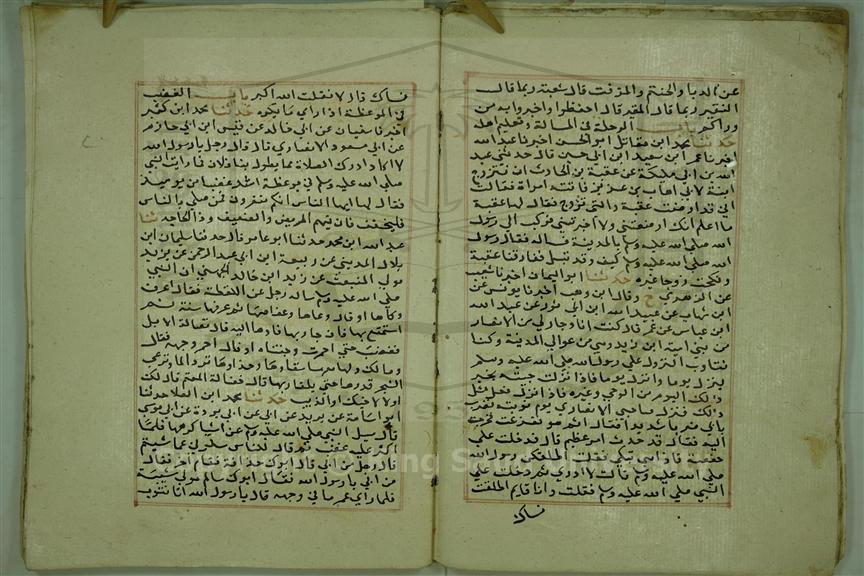 عن الدبا والحنتم والمزفت قال شعبة ربما قال
النقير وربما قال المقير قال احفظوا واخبروا به من
وراكم باب الرحلة في المسالة وتعليم اهله
حدثنا محمد ابن مقاتل ابو الحسن اخبرنا عبد الله
اخبرنا عمر ابن سعيد ابن ابي حسين قال حدثني عبد
الله بن ابي مليكة عن عقبة بن الحارث انه تزوج
ابنة لابي اهاب بن عزيز فاتته امراة فقالت
اني قد ارضعت عقبة والتي تزوج فقال لها عقبة
ما اعلم انك ارضعتني ولا اخبرتيني فركب الى رسول
الله صلى الله عليه وسلم بالمدينة فساله فقال رسول
الله صلى الله عليه وسلم كيف وقد قيل ففارقها عقبة
ونكحت زوجا غيره حدثنا ابو اليمان اخبرنا شعيب
عن الزهري ح وقال ابن وهب اخبرنا يونس عن
ابن شهاب عن عبيد الله ابن ابي ثور عن عبد الله
ابن عباس عن عمر قال كنت انا وجار لي من الانصار
من بني امية ابن زيد وهي من عوالي المدينة وكنا
نتناوب النزول على رسول الله صلى الله عليه وسلم
ينزل يوما وانزل يوما فاذا نزلت جيته بخبر
ذلك اليوم من الوحي وغيره فاذا نزل فعل مثل
ذلك فنزل صاحبي الانصاري يوم نوبته فضرب
بابي ضربا شديدا فقال اثم هو ففزعت فخرجت
اليه فقال قد حدث امر عظيم قال فدخلت على
حفصة فاذا هي تبكي فقلت اطلقكن رسول الله
صلى الله عليه وسلم قالت لا ادري ثم دخلت على
النبي صلى الله عليه وسلم فقلت وانا قايم اطلقت
نساك
نساك قال لا فقلت الله اكبر باب الغضب
في الموعظة اذا راي ما يكره حدثنا محمد ابن كثير
اخبرنا سفيان عن ابن ابي خالد عن قيس ابن ابي حازم
عن ابي مسعود الانصاري قال قال رجل يا رسول الله
لا اكاد ادرك الصلاة مما يطول بنا فلان فما رايت النبي
صلى الله عليه وسلم في موعظة اشد غضبا من يوميذ
فقال ايها الناس انكم منفرون فمن صلى بالناس
فليخفف فان فيهم المريض والضعيف وذا الحاجة حدثنا
عبد الله ابن محمد حدثنا ابو عامر قال حدثنا سليمان ابن
بلال المديني عن ربيعة ابن ابي عبد الرحمن عن يزيد
مولى المنبعث عن زيد ابن خالد الجهني ان النبي
صلى الله عليه وسلم ساله رجل عن اللقطة فقال اعرف
وكاها او قال وعاها وعفاصها ثم عرفها سنة ثم
استمتع بها فان جا ربها فادها اليه قال فضالة الابل
فغضب حتى احمرت وجنتاه او قال احمر وجهه فقال
وما لك ولها معها سقاوها وحذاوها ترد الما وترعى
الشجر فذرها حتى يلقاها ربها قال فضالة الغنم قال لك
او لاخيك او للذيب حدثنا محمد ابن العلا حدثنا
ابو اسامة عن بريد عن ابي بردة عن ابي موسى
قال سيل النبي صلى الله عليه وسلم عن اشيا كرهها فلما
اكثر عليه غضب ثم قال للناس سلوني عما شيتم
قال رجل من ابي قال ابوك حذافة فقام اخر فقال
من ابي يا رسول الله فقال ابوك سالم مولى شيبة
فلما راي عمر ما في وجهه قال يا رسول الله انا نتوب